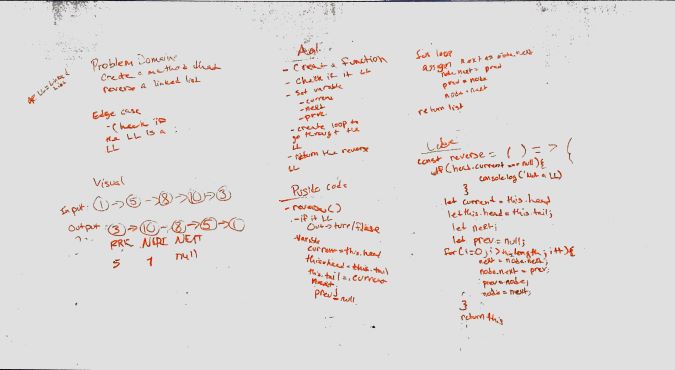 LL = Linked List
Problem Domain
Create a method that
reverse a linked list
Edge case
- Check if
the LL is a
LL
Visual
Input: 1 → 5 → 8 → 10 → 3
Output 3 → 10 → 8 → 5 → 1
NEXT
5 1 null
Algl.
- Creat a function
- Check if it LL
- Set variable
- current
- next
- prev
- create loop to
go through the
LL
- return the reverse
LL
code
- reversed()
- if it LL
Out → turn/false
Variable
current = this.head
this.head = this.tail
this.tail = current
next
prev = null
for loop
assign next as node.next
node.next = prev
prev = node
node = next
return list
const reverse = ( ) = > {
if (head.current === null) {
console.log('not a LL)
}
let current = this.head
let this.head = this.tail;
let next;
let prev = null;
for (i=0; i > length; i++){
next = node.next;
node.next = prev;
prev = node;
node = next;
}
return this